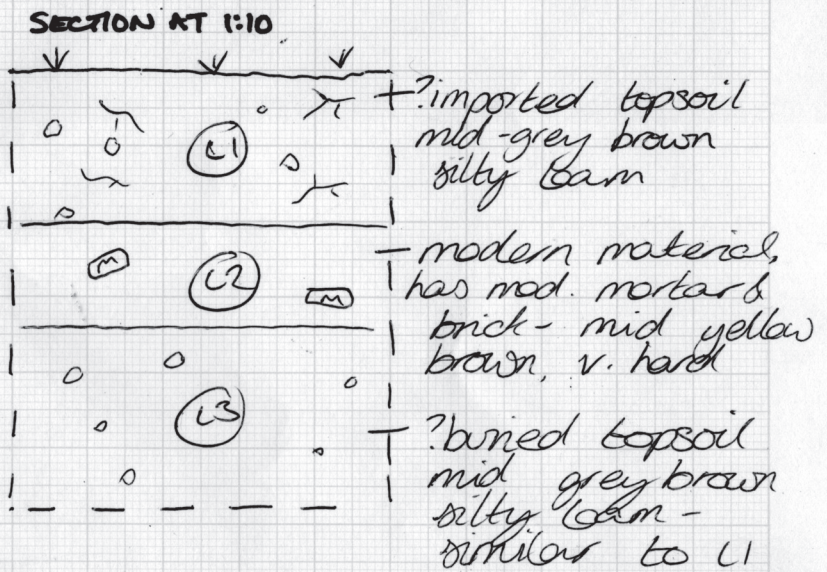 SECTION AT 1:10
?imported topsoil
mid-grey brown
silty loam
L1
modern material,
has mod. mortar &
brick - mid yellow
brown, v. hard
M
L2
M
L3
?buried topsoil
mid grey brown
silty loam -
similar to L1